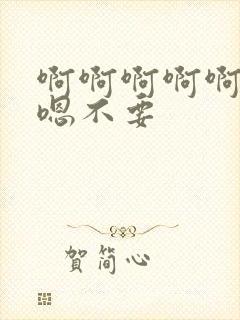 啊啊啊啊啊
嗯不要
賀简心